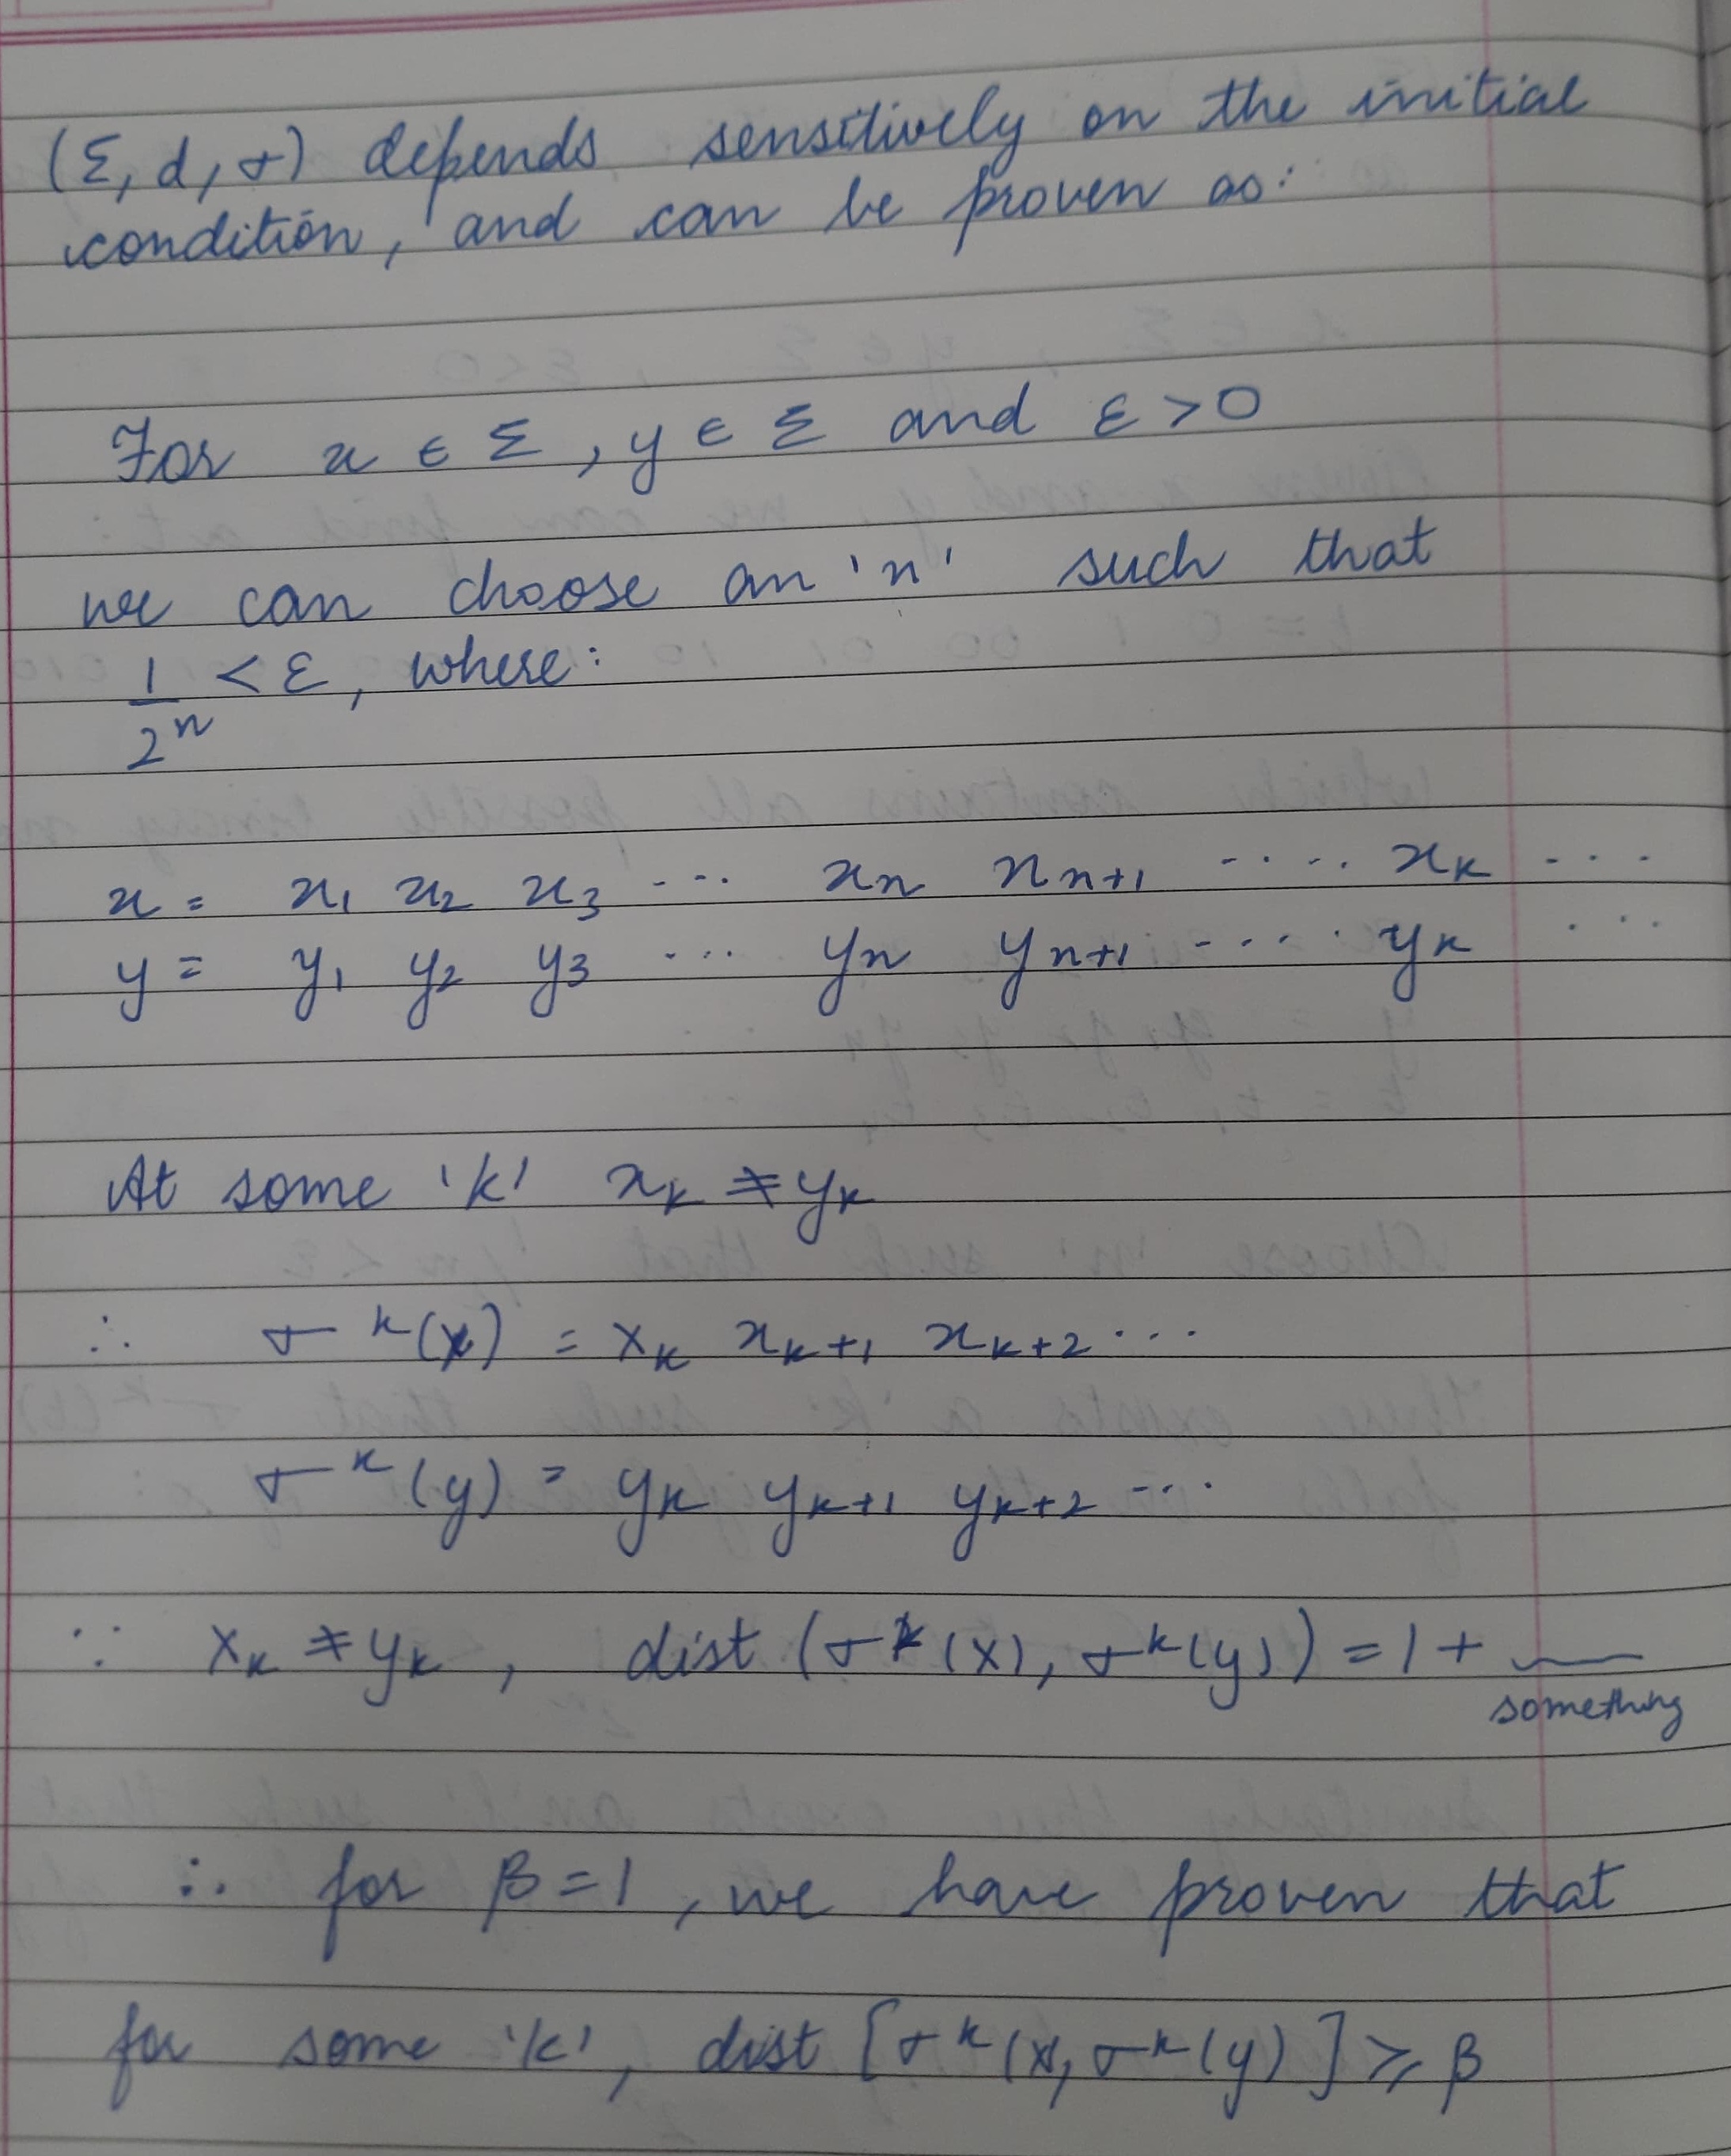 (Σ, d, σ) depends sensitively on the initial
condition, and can be proven as:
For x ∈ Σ, y ∈ Σ and ε > 0
we can choose an 'n' such that
1/2^n < ε, where:
x = x₁ x₂ x₃ --- xₙ xₙ₊₁ ----- xₖ ---
y = y₁ y₂ y₃ --- yₙ yₙ₊₁ ----- yₖ ...
At some 'k' xₖ ≠ yₖ
∴ σ^k(x) = xₖ xₖ₊₁ xₖ₊₂ ...
σ^k(y) = yₖ yₖ₊₁ yₖ₊₂ ---
∵ xₖ ≠ yₖ, dist (σ^k(x), σ^k(y)) = 1 + __
something
∴ for β = 1, we have proven that
for some 'k', dist [σ^k(x, σ^k(y)] ≥ β